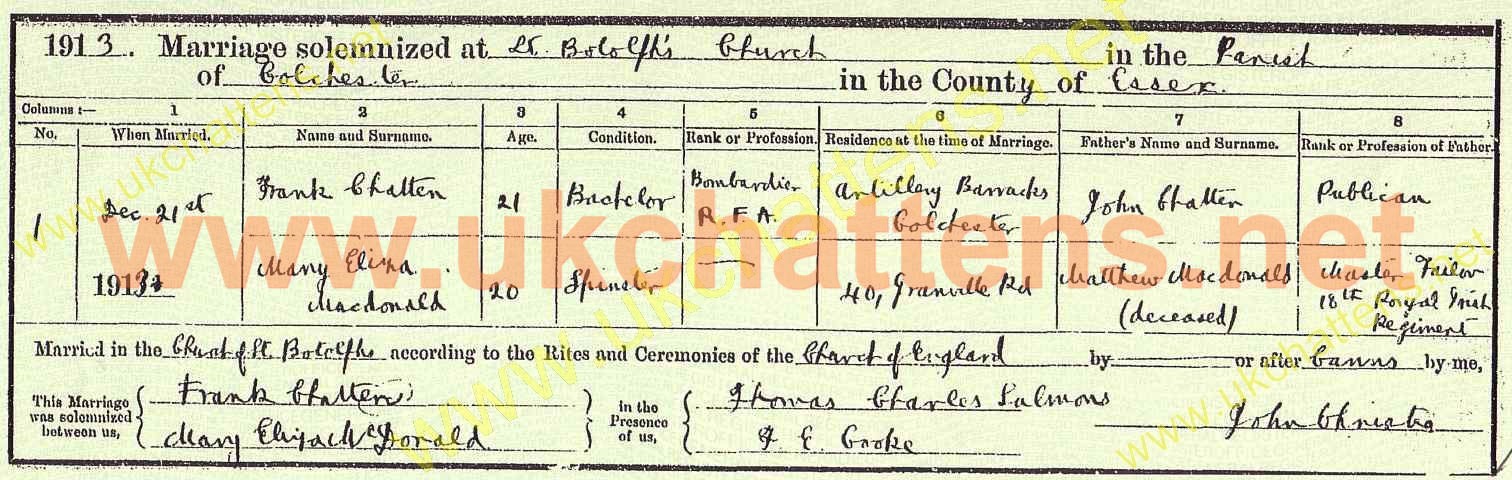 1913. Marriage solemnized at St. Botolph's Church in the Parish
of Colchester in the County of Essex.
Columns :— 1 2 3 4 5 6 7 8
No. When Married. Name and Surname. Age. Condition. Rank or Profession. Residence at the time of Marriage. Father's Name and Surname. Rank or Profession of Father.
1 Dec. 21st Frank Chatten 21 Bachelor Bombardier R.F.A. Artillery Barracks Colchester John Chatten Publican
1913 Mary Eliza Macdonald 20 Spinster — 40, Granville Rd Matthew Macdonald (deceased) Master Tailor 18th Royal Irish Regiment
Married in the Church of St. Botolph's according to the Rites and Ceremonies of the Church of England by or after Banns by me,
This Marriage was solemnized between us, Frank Chatten Mary Eliza McDonald in the Presence of us, Thomas Charles Salmons F E Cooke John Christie
www.ukchattens.net
www.ukchattens.net
www.ukchattens.net
www.ukchattens.net
www.ukchattens.net
www.ukchattens.net